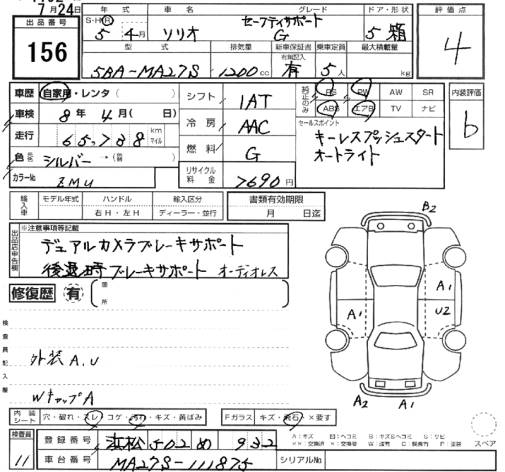 7月24日
出品番号 156
年式 S・H・R 5年4月
車名 ソリオ
グレード セーフティサポート G
ドア・形状 5 箱
評価点 4
型式 5BA-MA27S
排気量 1200cc
新車保証書 有無記入 有
乗車定員 5人
最大積載量 kg
車歴 自家用・レンタ( )
車検 8年4月( 日)
走行 65,788 km マイル
色 シルバー→( )
カラーNo ZMU
シフト IAT
冷房 AAC
燃料 G
リサイクル料金 7690円
純正のみ PS PW AW SR
ABS エアB TV ナビ
セールスポイント
キーレスプッシュスタート
オートライト
内装評価 b
輸入車 モデル年式 ハンドル 輸入区分
年 右H・左H ディーラー・並行
書類有効期限
月 日迄
出品店申告欄
※注意事項等記載
デュアルカメラブレーキサポート
後退時ブレーキサポート オーディオレス
修復歴 有 箇所
検査員記入欄
外装A.U
WキャップA
B2
A1
A1
U2
A2 A1
内装シート 穴・破れ・スレ・コゲ・汚れ・キズ・黄ばみ
Fガラス キズ・飛石・×要す
検査員 11
登録番号 浜松 502 め 932
車台番号 MA27S-111875
シリアルNo
スペア